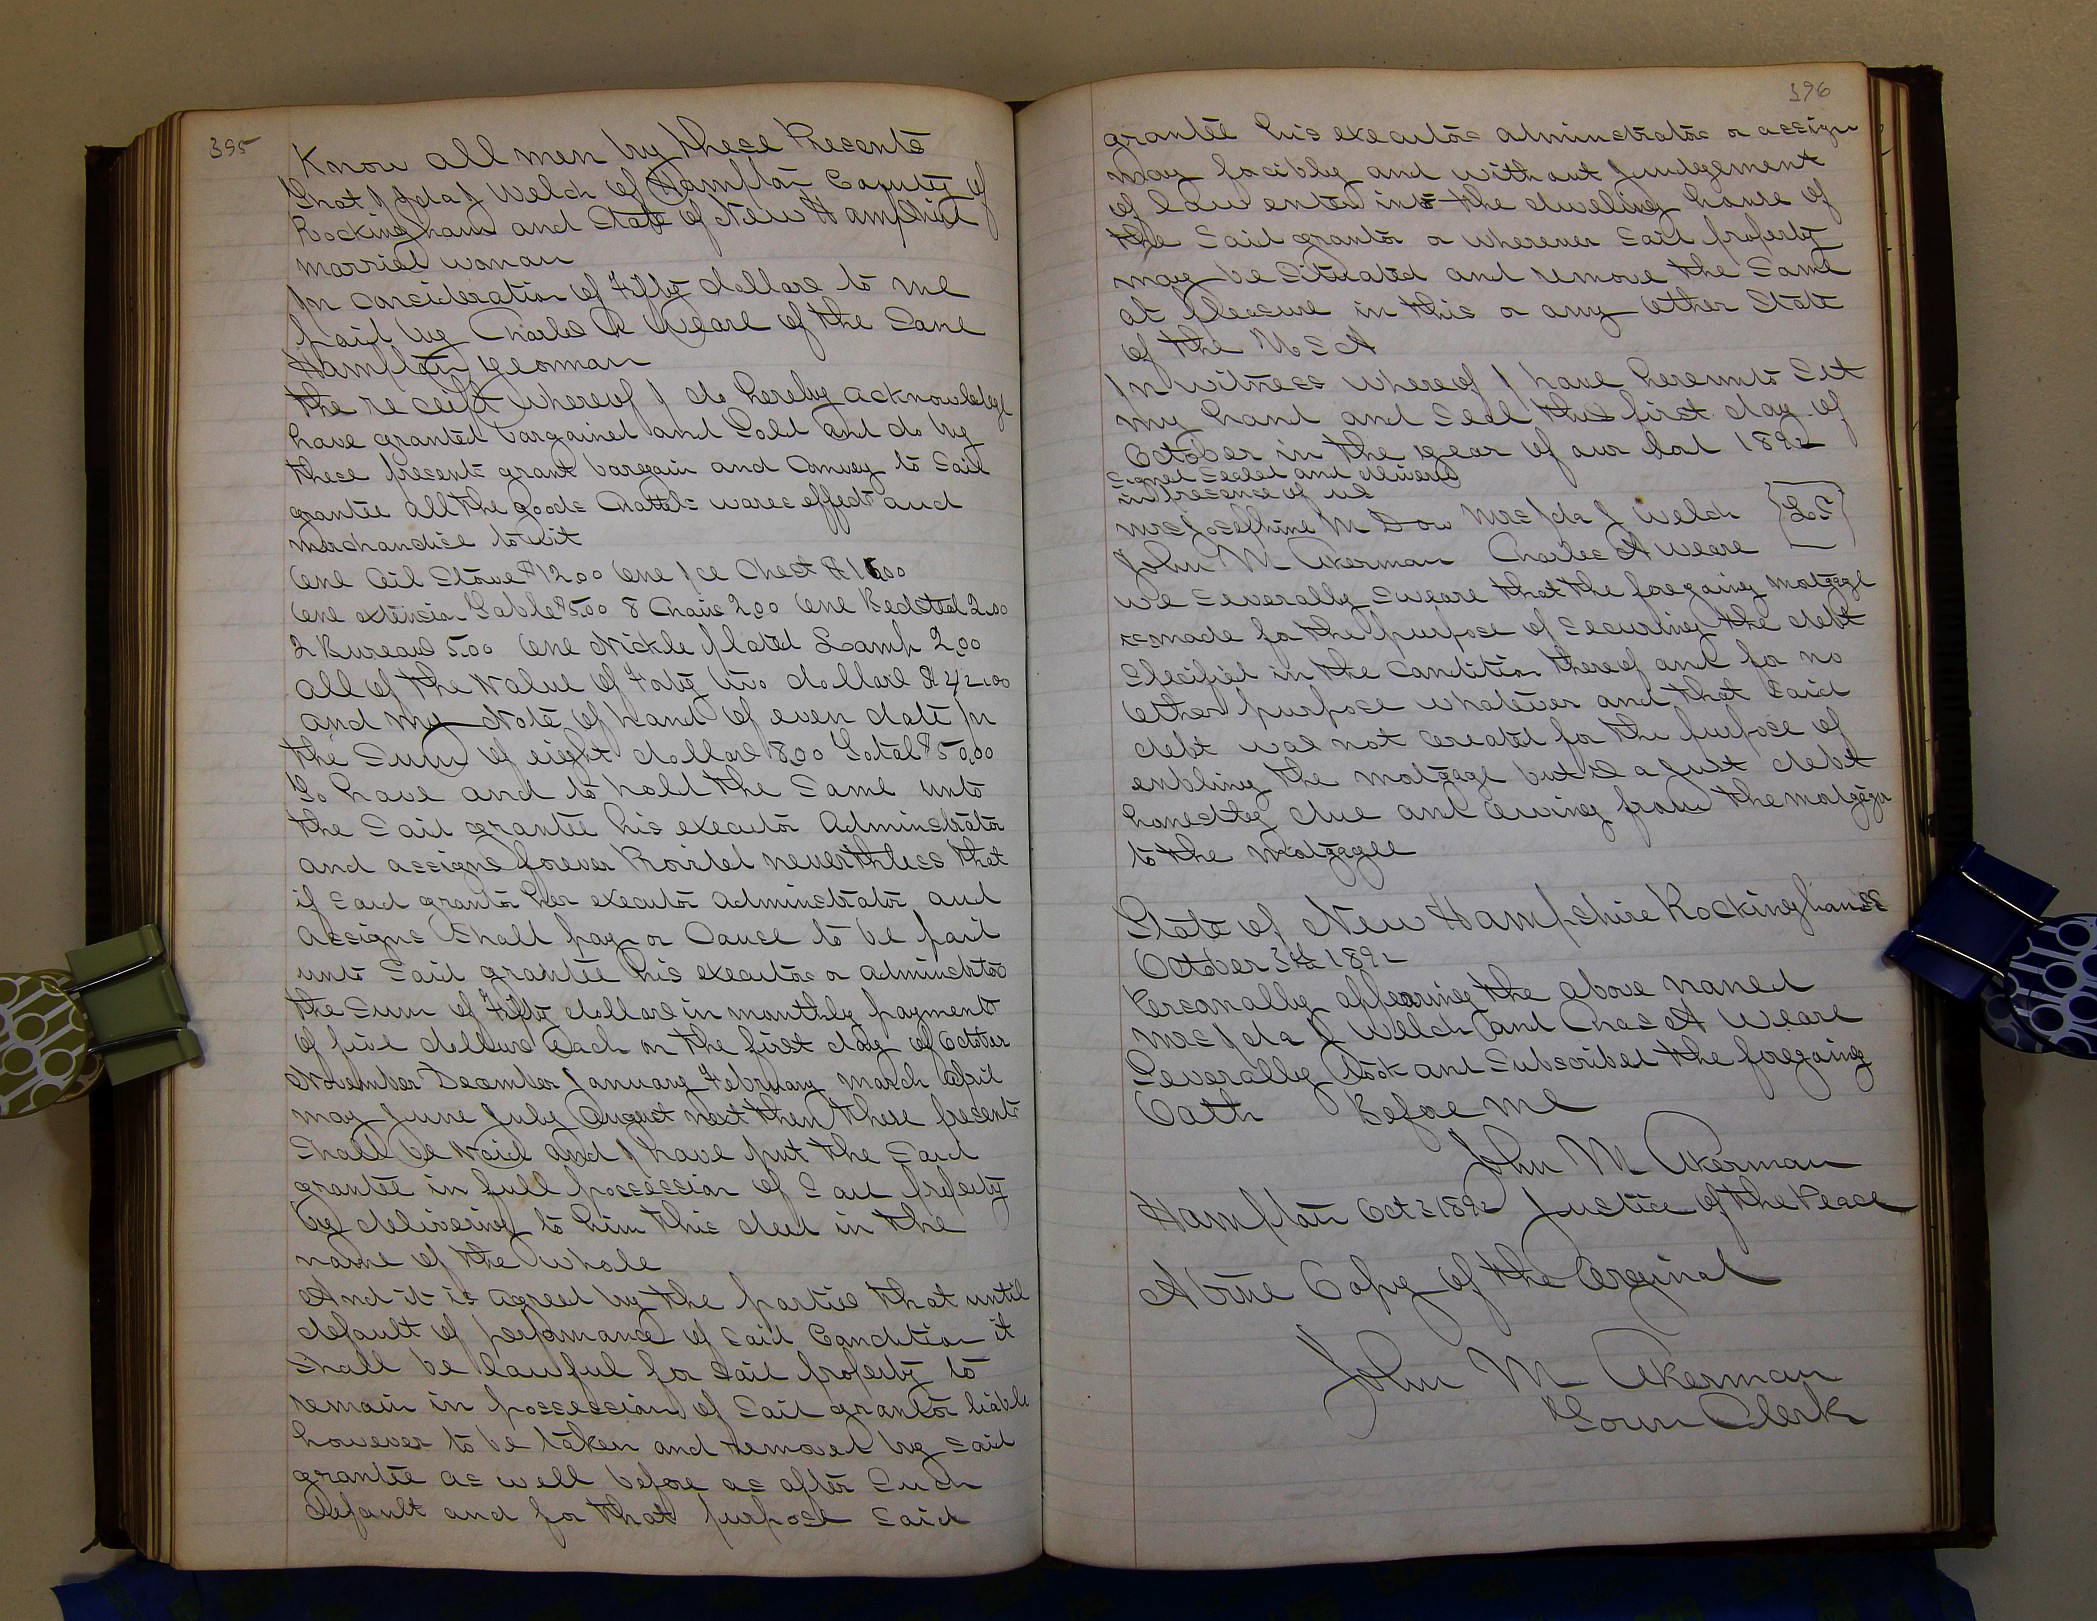 395
Know all men by these Presents
That I Ida J Welch of Hampton County of
Rockingham and State of New Hampshire
married woman
In consideration of Fifty dollars to me
paid by Charles A Weare of the Same
Hampton yeoman
the receipt whereof I do hereby acknowledge
have granted bargained and Sold and do by
these presents grant bargain and Convey to Said
grantee all the goods Chattels wares effects and
merchandise to wit
One Oil Stove $12.00 One Ice Chest $ 00
One extension Table $5.00 8 Chairs 2.00 One Bedsted 2.00
2 Bureaus 5.00 One Nickle plated Lamp 2.00
all of the Value of Forty two dollars $42.00
and my Note of hand of even date In
the Sum of eight dollars 8.00 Total $50.00
To have and to hold the Same unto
the Said grantee his executor Adminstrator
and assigns forever Provided nevertheless that
if Said grantor her executor adminstrator and
assigns Shall pay or Cause to be paid
unto Said grantee his executor or adminstrator
the Sum of Fifty dollars in monthly payments
of five dollars Each on the first day of October
November December January February March April
may June July August next then these presents
Shall be Void and I have put the Said
grantee in full possession of Said property
by delivering to him this deed in the
name of the Whole
And it is agreed by the parties that until
default of performance of Said Condition it
Shall be lawful for Said property to
remain in possession of Said grantor liable
however to be taken and removed by Said
grantee as well before as after Such
default and for that purpose Said
396
grantee his executor adminstrator or assign
may forcibly and without Judgement
of law enter into the dweling house of
the Said grantor or wherever Said property
may be Situated and remove the Same
at pleasure in this or any other State
of the U S A
In witness whereof I have hereunto Set
my hand and Seal this first day of
October in the year of our lord 1892
Signed Sealed and delivered
in presence of us
Mrs Josephine M Dow Mrs Ida J Welch LS
John M Akerman Charles A Weare
We Severally Sweare that the foregoing Mortgage
is made for the purpose of Securing the debt
Specified in the Condition thereof and for no
Other purpose whatever and that Said
debt was not Created for the purpose of
enabling the mortgage but is a Just debt
honestly due and Owing from the mortgager
to the Mortgagee
State of New Hampshire Rockingham SS
October 3d 1892
Personally appearing the above named
Mrs Ida J Welch and Chas A Weare
Severally Took and Subscribed the foregoing
Oath Before me
John M Akerman
Hampton Oct 3 1892 Justice of the Peace
A true Copy of the Orginal
John M Akerman
Town Clerk